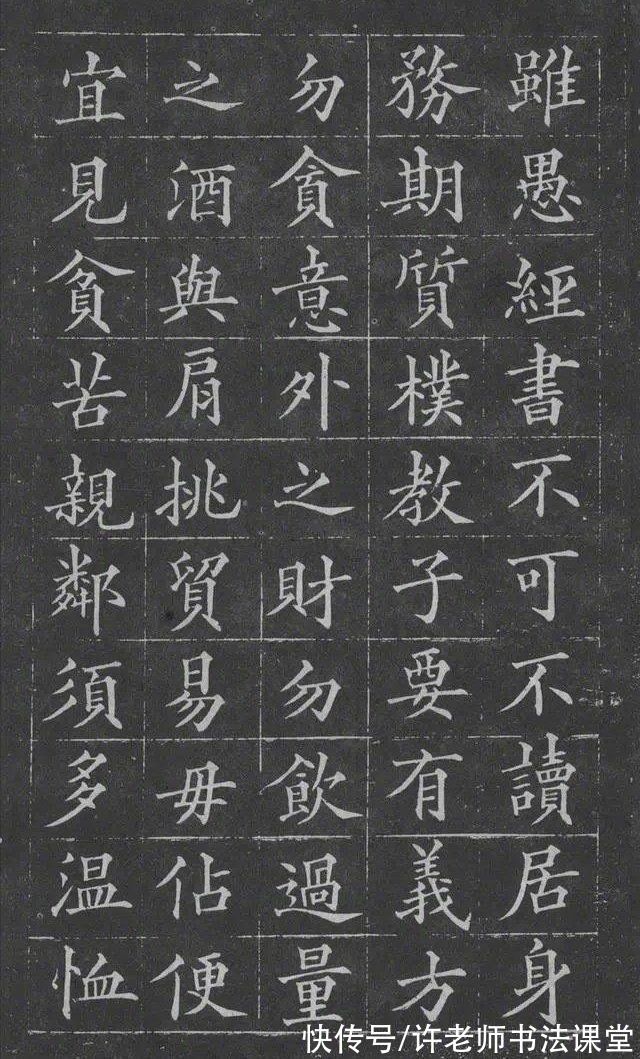 雖愚經書不可不讀居身
務期質樸教子要有義方
勿貪意外之財勿飲過量
之酒與肩挑貿易毋佔便
宜見貧苦親鄰須多温恤
快传号/许老师书法课堂